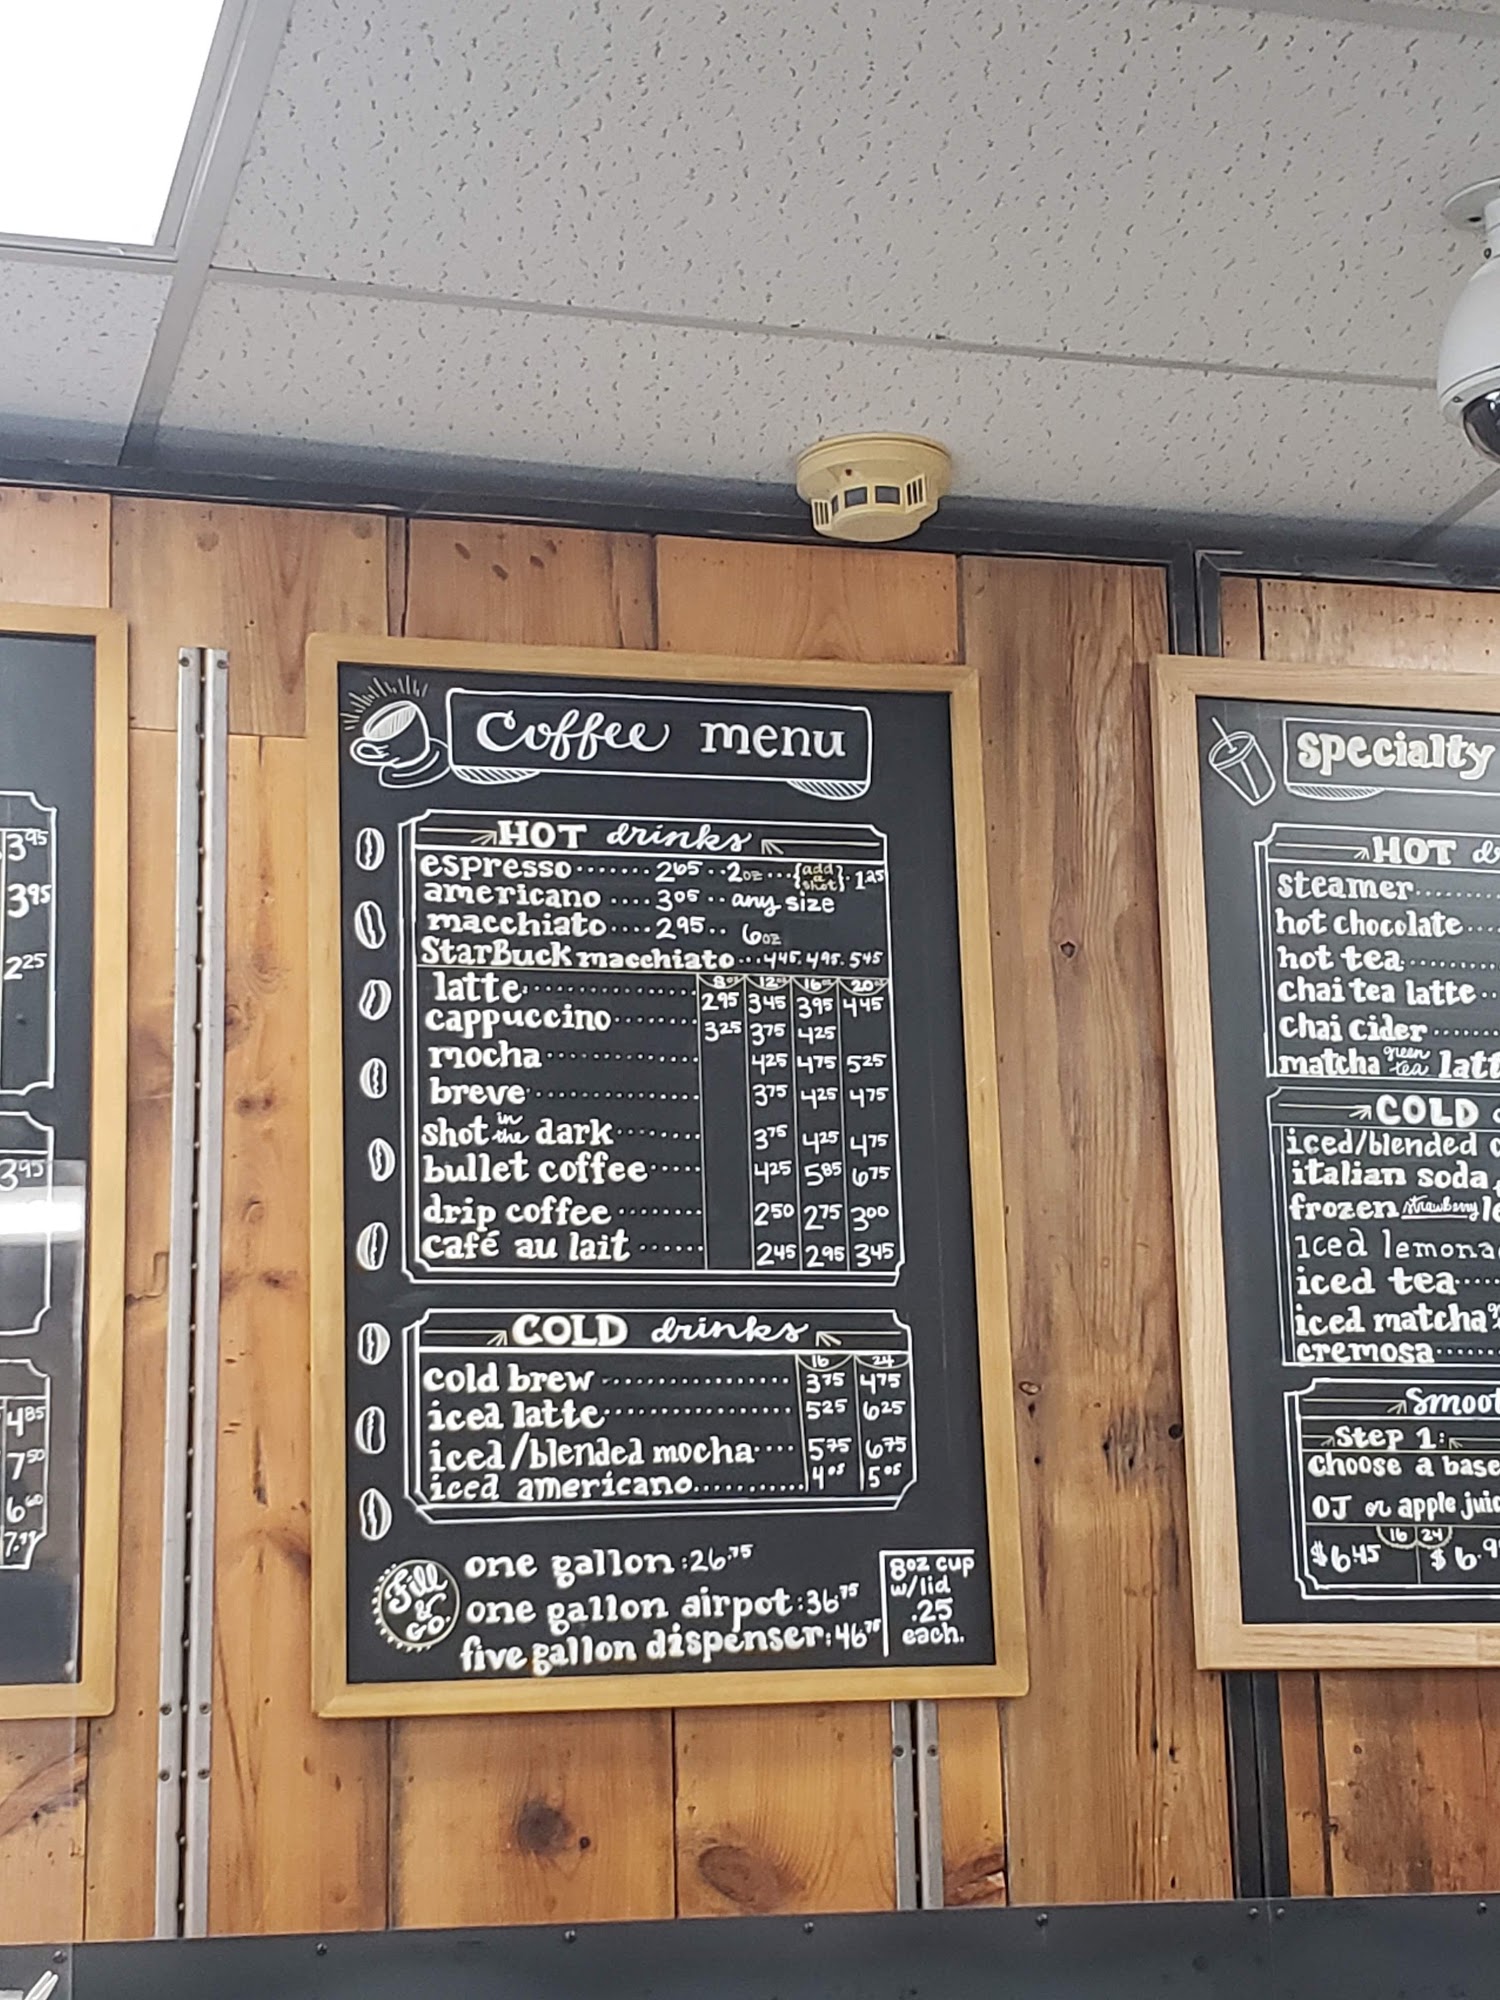 3.95
3.95
2.25
3.95
4.85
7.50
6.60
Coffee menu
HOT drinks
espresso.......2.65..2oz...{add a shot}.1.25
americano....3.05..any size
macchiato....2.95..6oz
StarBuck macchiato...4.45.4.95.5.45
8oz 12oz 16oz 20oz
latte 2.95 3.45 3.95 4.45
cappuccino 3.25 3.75 4.25
mocha 4.25 4.75 5.25
breve 3.75 4.25 4.75
shot in the dark 3.75 4.25 4.75
bullet coffee 4.25 5.85 6.75
drip coffee 2.50 2.75 3.00
café au lait 2.45 2.95 3.45
COLD drinks
16 24
cold brew 3.75 4.75
iced latte 5.25 6.25
iced/blended mocha 5.75 6.75
iced americano 4.05 5.05
Fill & Go
one gallon:26.75
one gallon airpot:36.75
five gallon dispenser:46.75
8oz cup
w/lid
.25
each.
Specialty
HOT
steamer
hot chocolate
hot tea
chai tea latte
chai cider
matcha green tea latt
COLD
iced/blended
italian soda
frozen strawberry le
iced lemona
iced tea
iced matcha
cremosa
Smoot
Step 1:
choose a base
OJ or apple juic
16 24
$6.45 $6.9